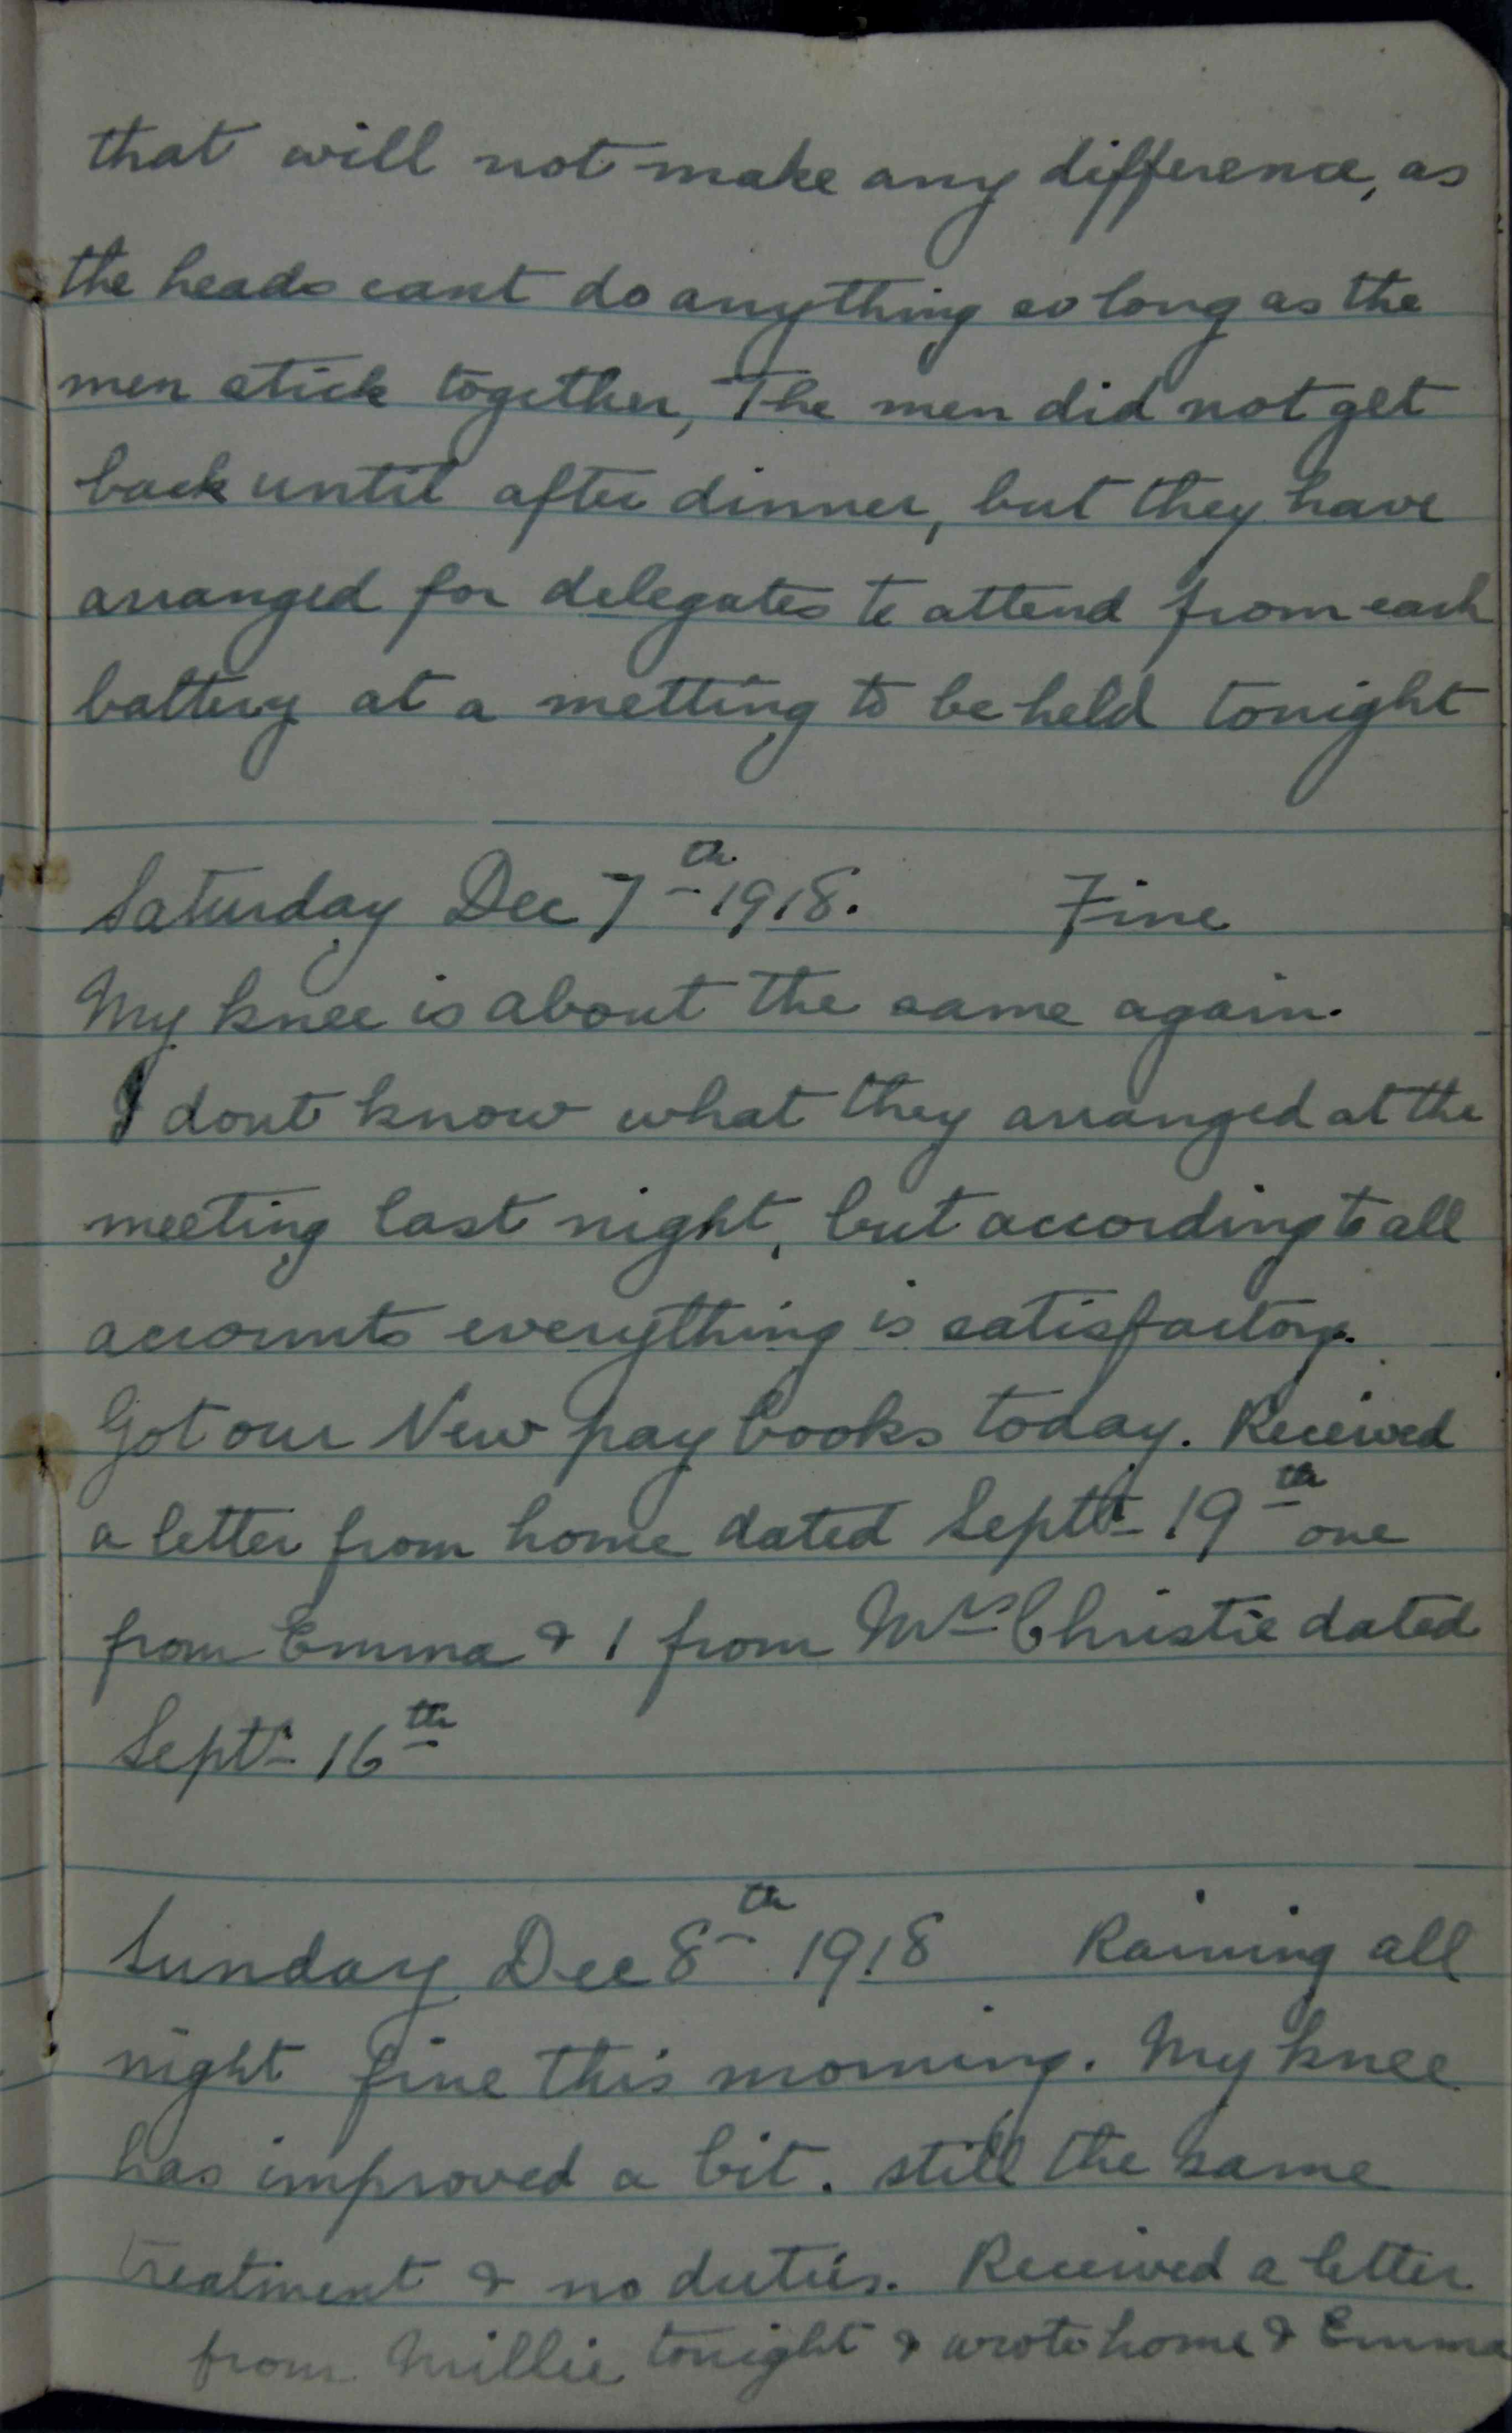 that will not make any difference, as
the heads cant do anything so long as the
men stick together, The men did not get
back until after dinner, but they have
arranged for delegates to attend from each
battery at a metting to be held tonight
Saturday Dec 7th 1918. Fine
My knee is about the same again.
I dont know what they arranged at the
meeting last night, but according to all
accounts everything is satisfactory.
Got our New pay books today. Received
a letter from home dated Septr 19th one
from Emma & 1 from Mrs Christie dated
Septr 16th
Sunday Dec 8th 1918 Raining all
night fine this morning. My knee
has improved a bit. still the same
treatment & no duties. Received a letter
from Millie tonight & wrote home & Emma